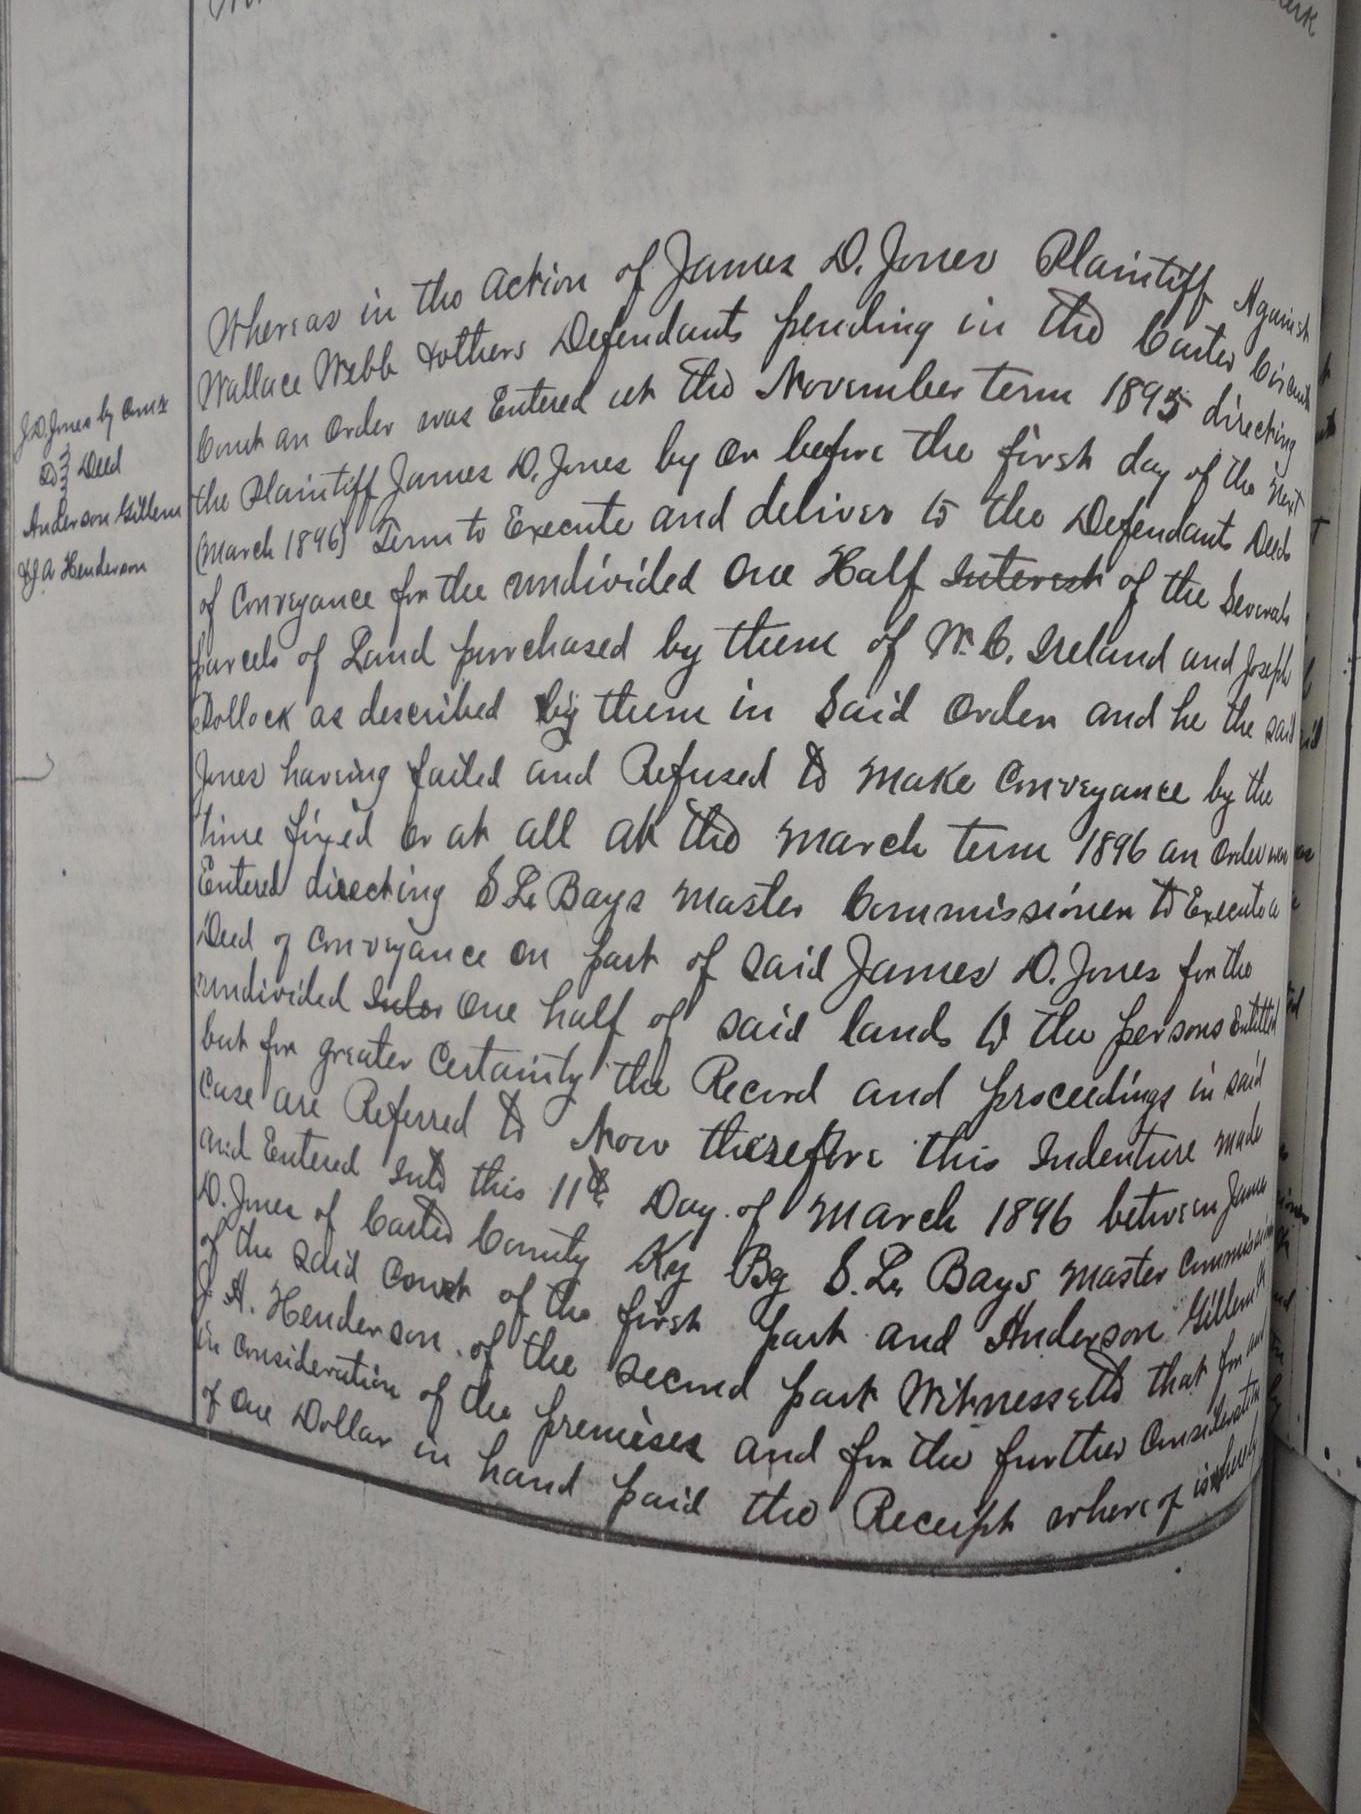 J.D. Jones by Comr
To } Deed
Anderson Gillem
& J.A. Henderson
Whereas in the Action of James D. Jones Plaintiff Against
Wallace Webb & others Defendants pending in the Carter Circuit
Court an Order was Entered at the November term 1895 directing
the Plaintiff James D. Jones by or before the first day of the Next
(March 1896) Term to Execute and deliver to the Defendants Deeds
of Conveyance for the undivided One Half Interest of the Several
parcels of Land purchased by them of W.C. Ireland and Joseph
Pollock as described by them in Said Order and he the said
Jones having failed and Refused to make Conveyance by the
time fixed or at all at the March term 1896 an Order was
Entered directing S.L. Bays Master Commissioner to Execute a
Deed of Conveyance on part of said James D. Jones for the
undivided Inter One half of said lands to the persons Entitled
but for greater Certainity the Record and proceedings in said
Case are Referred to Now therefore this Indenture made
and Entered Into this 11th Day of March 1896 between James
D. Jones of Carter County Ky By S.L. Bays Master Commissioner
of the said Court of the first part and Anderson Gillem &
J.A. Henderson of the second part Witnesseth that for and
in Consideration of the premises and for the further Consideration
of One Dollar in hand paid the Receipt where of is hereby